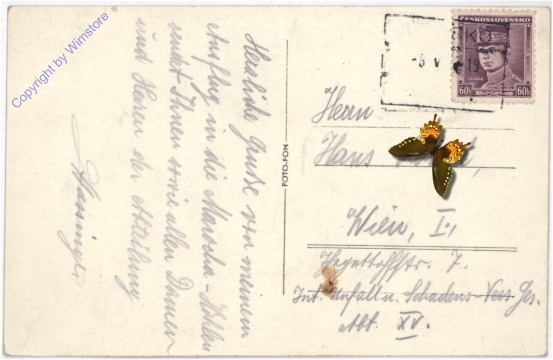 Copyright by Wimstore
Herzliche Grüße von meinem
Ausflug in die Macocha-Höhlen
sendet Ihnen sowie allen Damen
und Herren der Abteilung
ČESKOSLOVENSKO
60h 60h
-5 V
FOTO-FON
Herrn
Hans
Wien, I.,
Tegetthoffstr. 7.
Int. Unfall u. Schadens-Vers Ges.
Abt. XV.